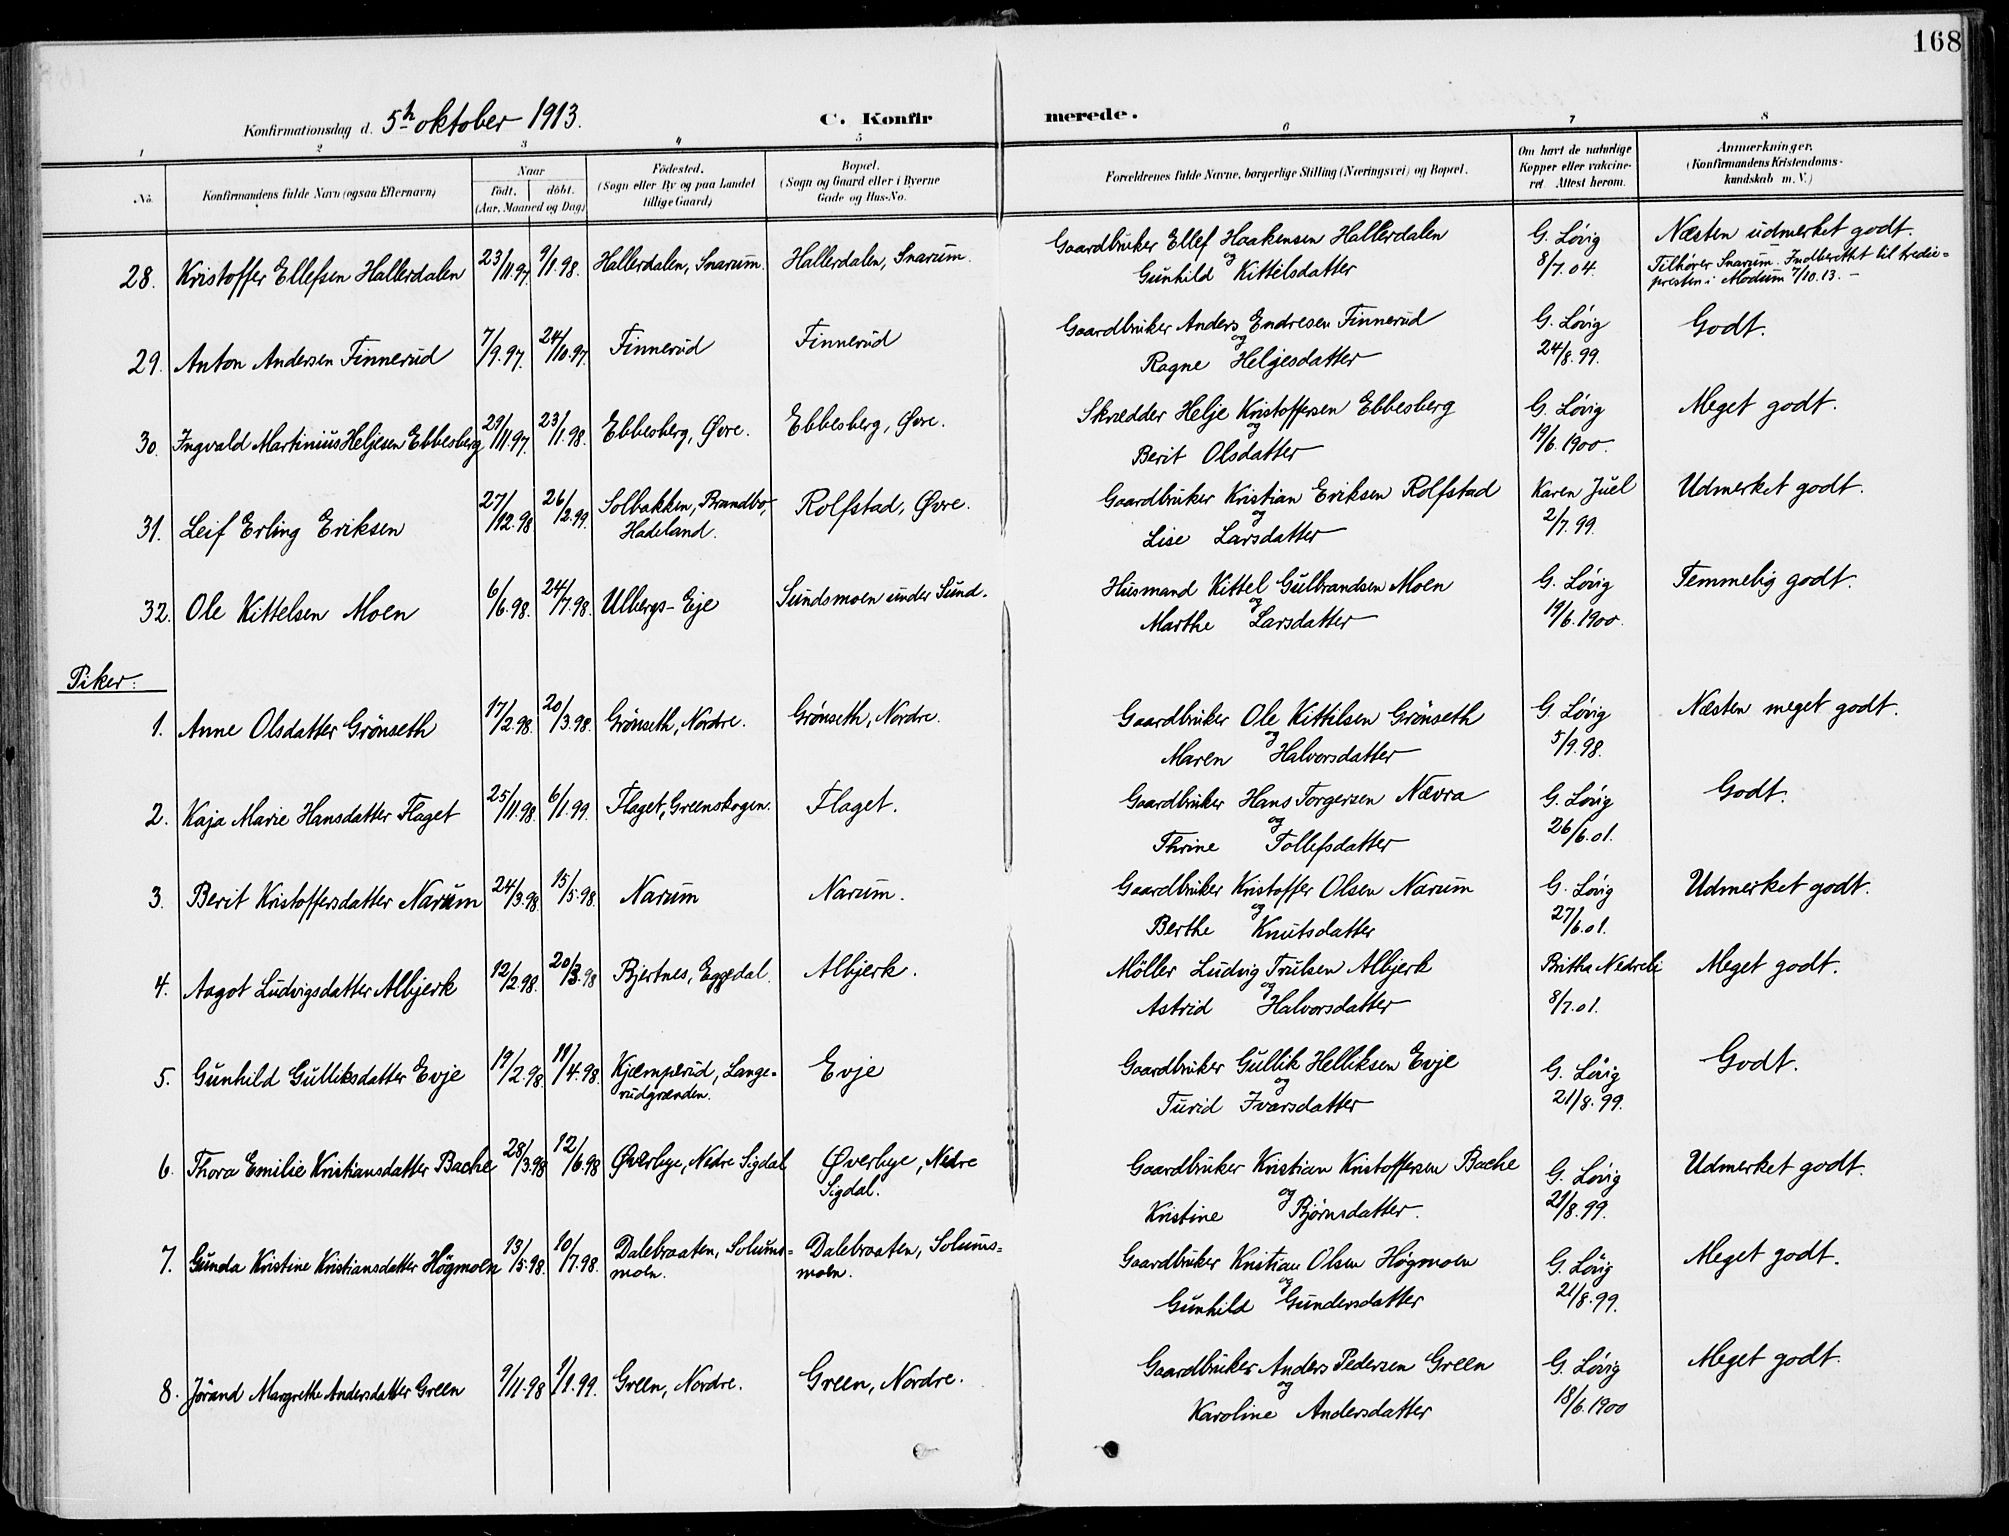 168
Konfirmationsdag d. 5h oktober 1913.
C. Konfirmerede.
1 2 3 4 5 6 7 8
No.
Konfirmandens fulde Navn (ogsaa Efternavn)
Naar
födt. döbt.
(Aar, Maaned og Dag)
Födested.
(Sogn eller By og paa Landet
tillige Gaard)
Bopæl.
(Sogn og Gaard eller i Byerne
Gade og Hus-No.
Forældrenes fulde Navne, borgerlige Stilling (Næringsvei) og Bopæl.
Om havt de naturlige
Kopper eller vakcine-
ret. Attest herom.
Anmærkninger.
(Konfirmandens Kristendoms-
kundskab m. V.)
28. Kristoffer Ellefsen Hallerdalen 23/11.97 9/1.98. Hallerdalen, Snarum. Hallerdalen, Snarum. Gaardbruker Ellef Haakensen Hallerdalen G. Lövig Næsten udmerket godt.
og
Gunhild Kittelsdatter 8/7.04. Tilhører Snarum. Indberettet til tredie-
presten i Modum 7/10.13. –
29. Anton Andersen Finnerud 7/9.97. 24/10.97. Finnerud Finnerud Gaardbruker Anders Endresen Finnerud G. Lövig Godt.
og
Ragne Helgesdatter 24/8.99.
30. Ingvald Martinius Heljesen Ebbesberg 29/11.97. 23/1.98. Ebbesberg, Øvre. Ebbesberg, Øvre. Skrædder Helje Kristoffersen Ebbesberg G. Lövig Meget godt.
og
Berit Olsdatter 19/6.1900.
31. Leif Erling Eriksen 27/12.98 26/2.99. Solbakken, Brandbo, Rolfstad, Øvre. Gaardbruker Kristian Eriksen Rolfstad Karen Juel Udmerket godt.
Hadeland.
og
Lise Larsdatter 2/7.99.
32. Ole Kittelsen Moen 6/6.98. 24/7.98. Ulbergs-Eje Sundsmoen under Sund. Husmand Kittel Gulbrandsen Moen G. Lövig Temmelig godt.
og
Marthe Larsdatter 19/6.1900.
Piker:
1. Anne Olsdatter Grönseth 17/2.98. 20/3.98. Grönseth, Nordre. Grönseth, Nordre. Gaardbruker Ole Kittilsen Grönseth G. Lövig Næsten meget godt.
og
Maren Halvorsdatter 5/9.98.
2. Kaja Marie Hansdatter Flaget 25/11.98. 6/1.99. Flaget, Greenskogen. Flaget. Gaardbruker Hans Torgersen Nævra G. Lövig Godt.
og
Thrine Tollefsdatter 26/6.01.
3. Berit Kristoffersdatter Narum 24/3.98. 15/5.98. Narum Narum. Gaardbruker Kristoffer Olsen Narum G. Lövig Udmerket godt.
og
Berthe Knutsdatter 27/6.01.
4. Aagot Ludvigsdatter Albjerk 12/2.98. 20/3.98 Bjertnes, Eggedal Albjerk. Möller Ludvig Trulsen Albjerk Britha Nedrebi Meget godt.
og
Astrid Halvorsdatter 8/7.01.
5. Gunhild Gulliksdatter Evje 19/2.98. 11/4.98. Kjæmperud, Lange- Evje Gaardbruker Gullik Helliksen Evje G. Lövig Godt.
rudgrænden.
og
Turid Ivarsdatter 21/8.99.
6. Thora Emilie Kristiansdatter Bache 28/3.98 12/6.98 Øverbye, Nedre Sigdal Øverbye, Nedre Gaardbruker Kristian Kristoffersen Bache G. Lövig Udmerket godt.
Sigdal.
og
Kristine Bjørnsdatter. 21/8.99.
7. Gunda Kristine Kristiansdatter Högmoen 13/5.98. 10/7.98. Dalebraaten, Solums- Dalebraaten, Solums- Gaardbruker Kristian Olsen Høgmoen G. Lövig Meget godt.
moen. moen.
og
Gunhild Gundersdatter 21/8.99.
8. Jörand Margrethe Andersdatter Green 9/11.98 1/1.99. Green, Nordre. Green, Nordre. Gaardbruker Anders Pedersen Green G. Lövig Meget godt.
og
Karoline Andersdatter 18/6.1900